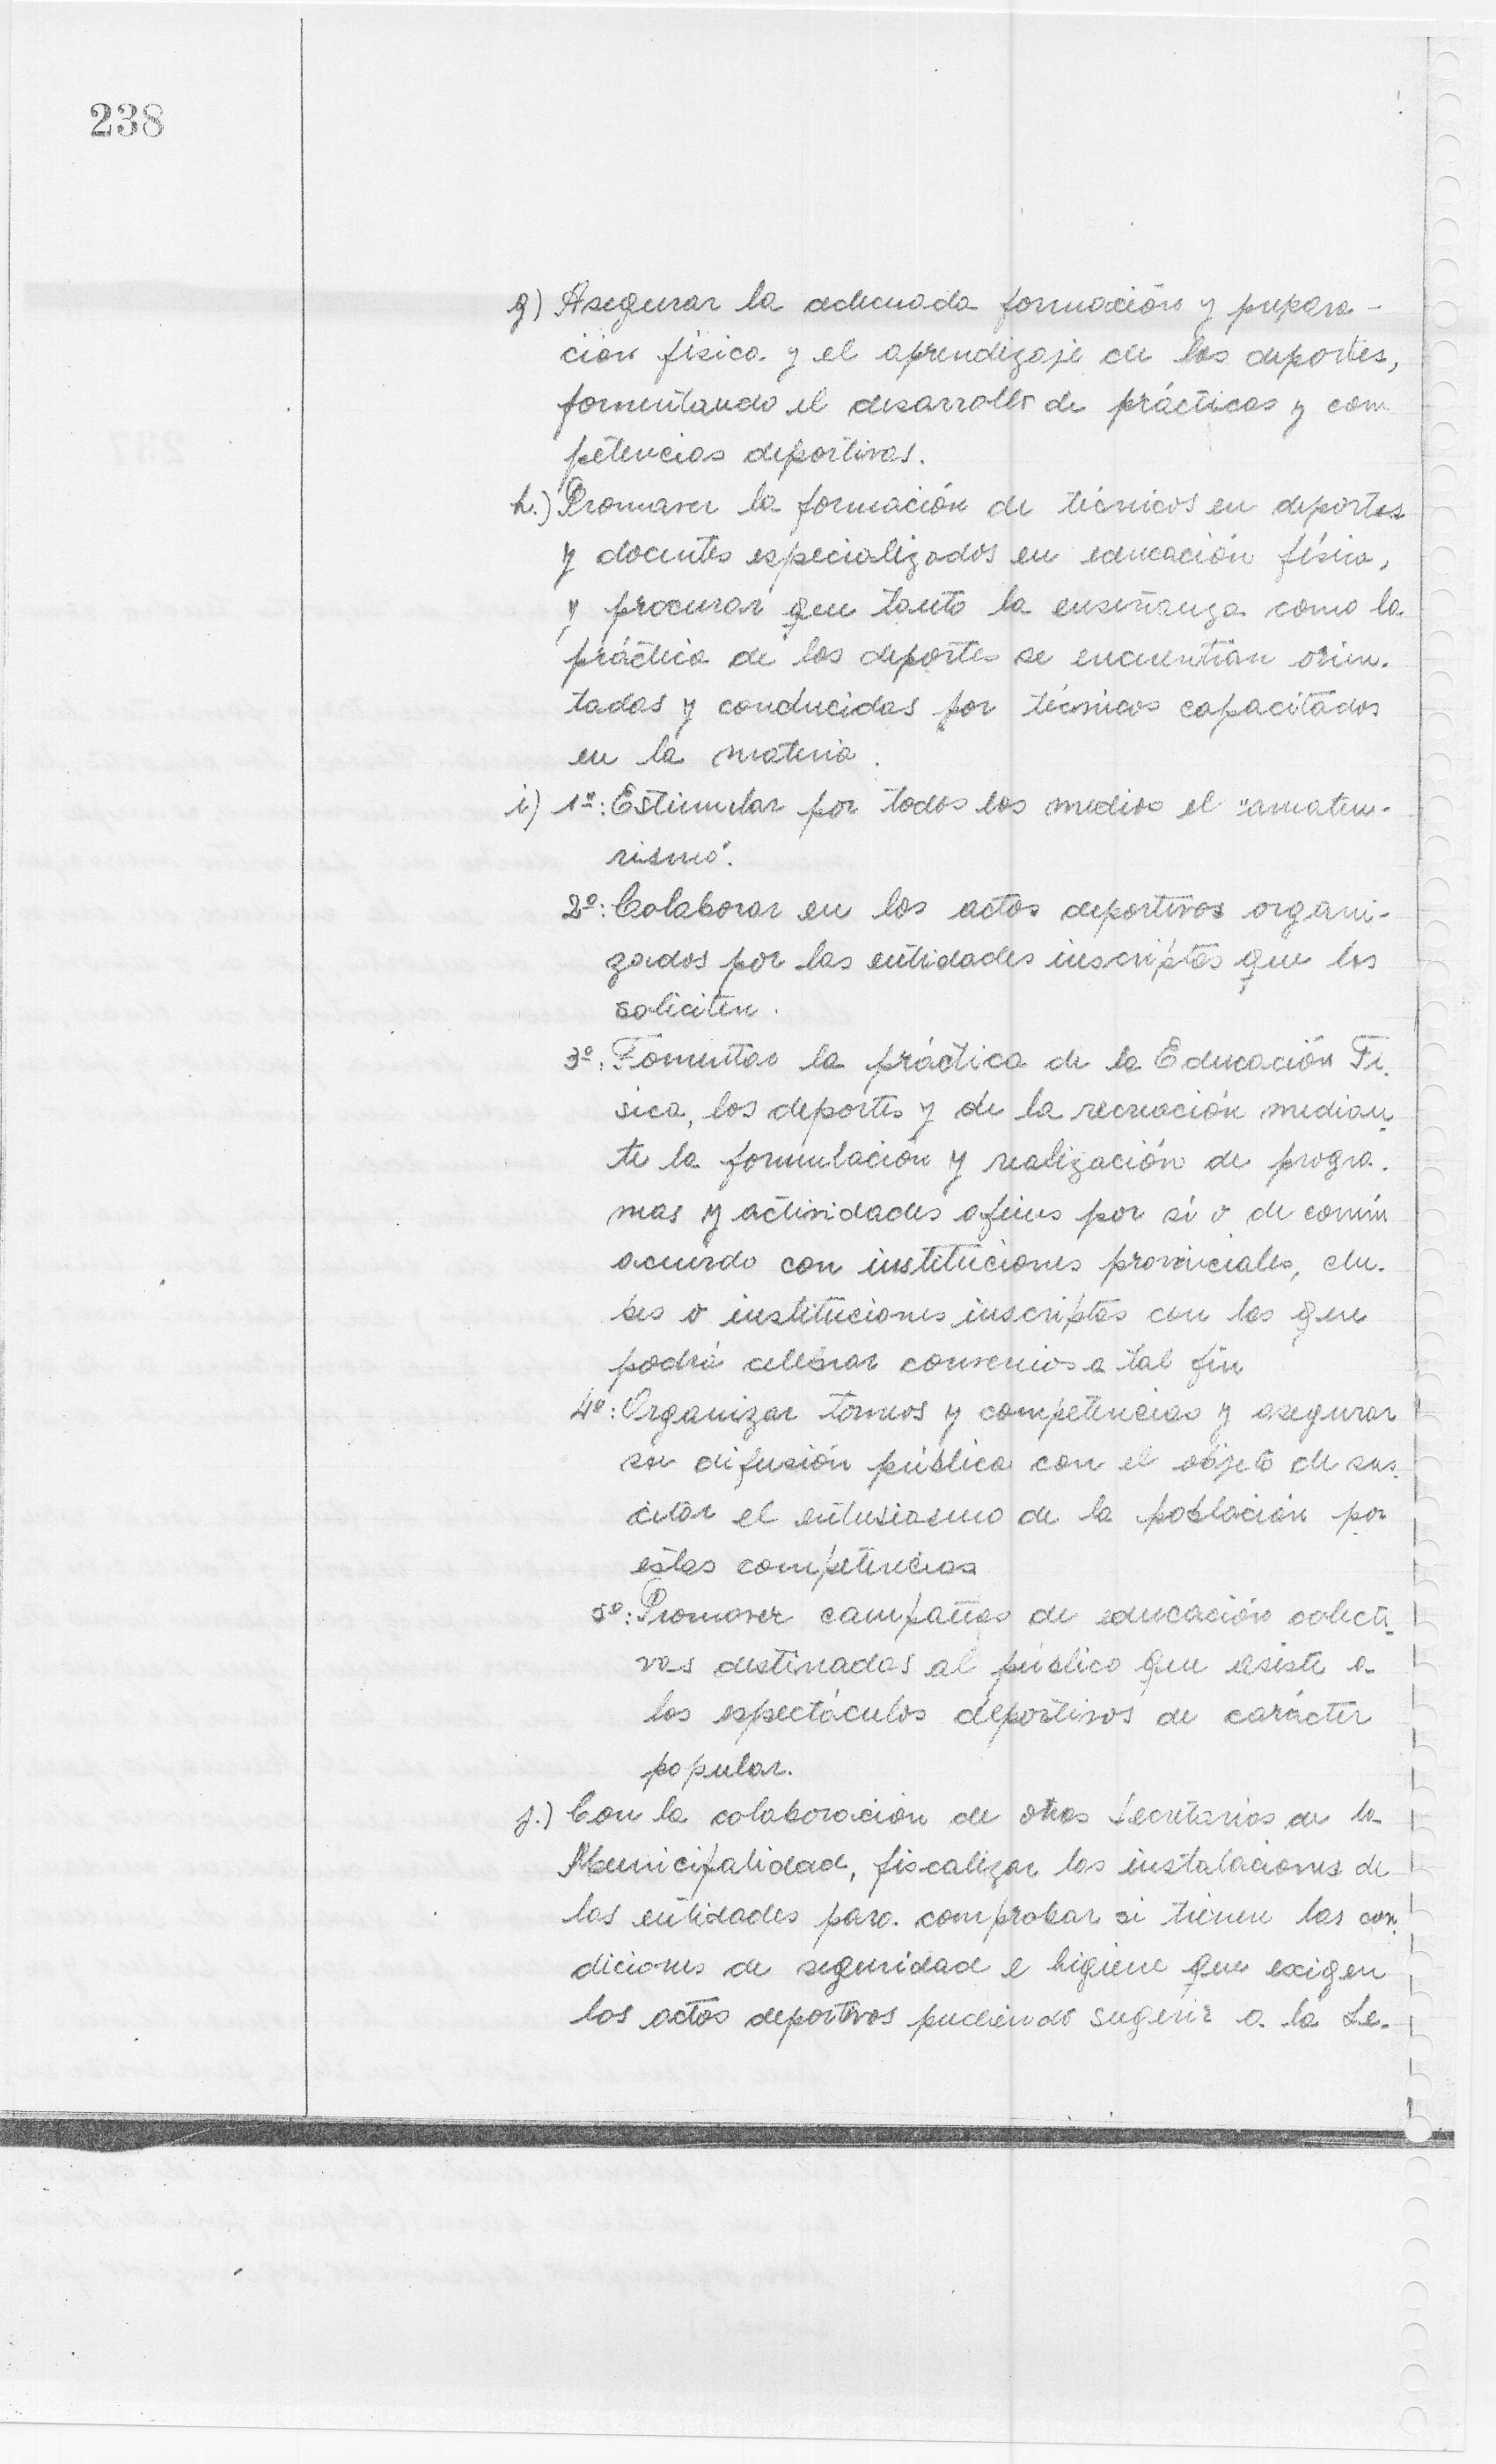 238
g) Asegurar la adecuada formación y prepara-
ción física y el aprendizaje de los deportes,
fomentando el desarrollo de prácticas y com
petencias deportivas.
h.) Promover la formación de técnicos en deportes
y docentes especializados en educación física,
y procurar que tanto la enseñanza como la
práctica de los deportes se encuentran orien-
tadas y conducidas por técnicos capacitados
en la materia.
i) 1º: Estimular por todos los medios el "amateu-
rismo".
2º: Colaborar en los actos deportivos organi-
zados por las entidades inscriptas que los
soliciten.
3º: Fomentar la práctica de la Educación Fí-
sica, los deportes y de la recreación median
te la formulación y realización de progra-
mas y actividades afines por sí o de común
acuerdo con instituciones provinciales, clu-
bes o instituciones inscriptas con las que
podrá celebrar convenios a tal fin
4º: Organizar torneos y competencias y asegurar
su difusión pública con el objeto de sus-
citar el entusiasmo de la población por
estas competencias
5º: Promover campañas de educación colecti
vas destinadas al público que asiste a
los espectáculos deportivos de carácter
popular.
j.) Con la colaboración de otras Secretarías de la
Municipalidad, fiscalizar las instalaciones de
las entidades para comprobar si tienen las con
diciones de seguridad e higiene que exigen
los actos deportivos pudiendo sugerir a la Se-